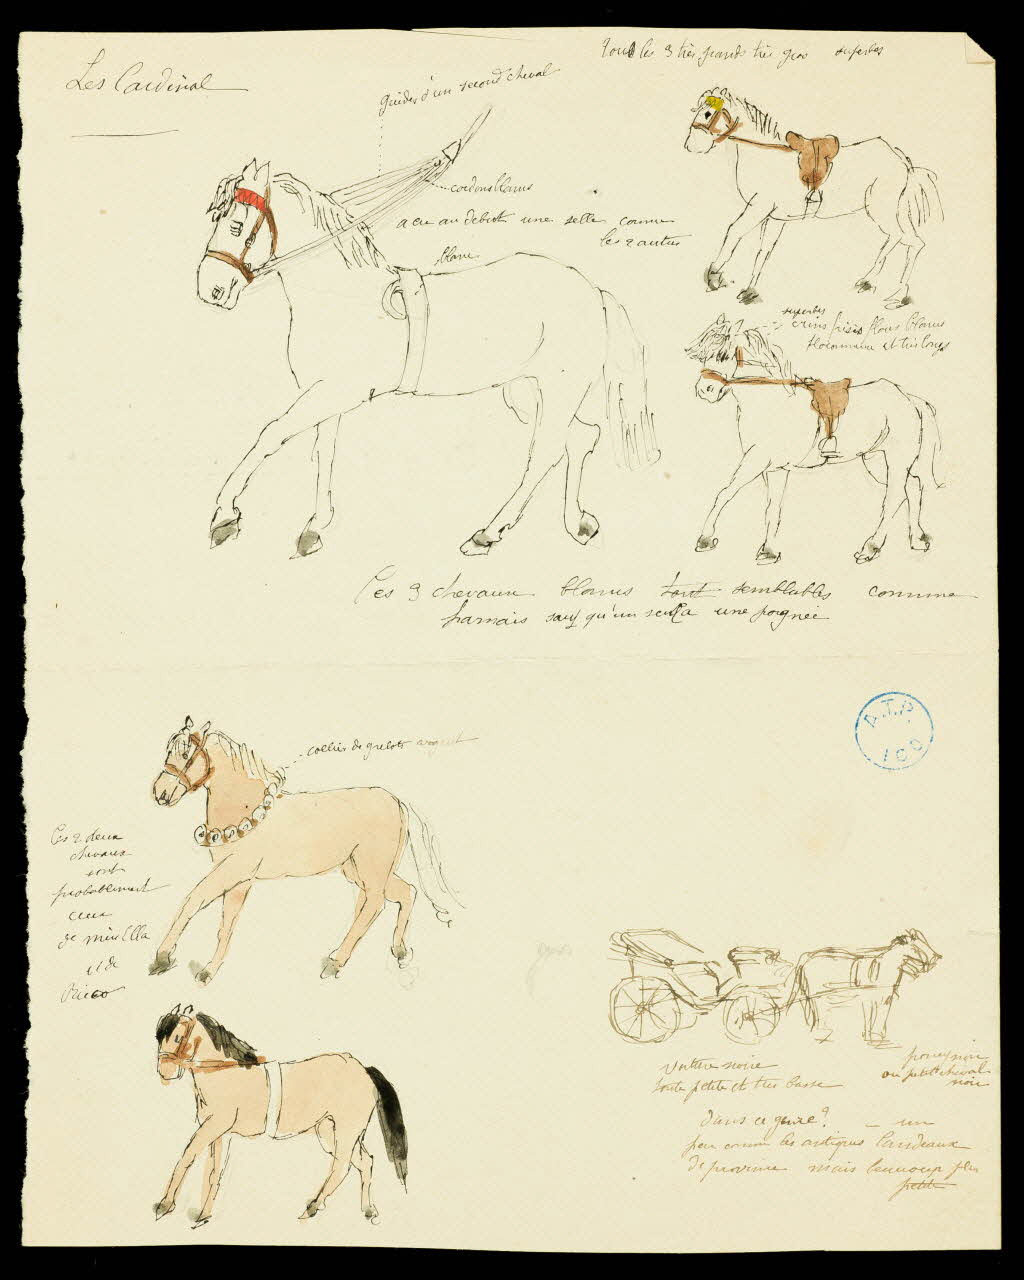 Les Cardinal
tous les 3 très grands très gros superbes
guides d'un second cheval
cordons blancs
a eu au debut une selle comme
les 2 autres
blanc
superbes
crins frisés flous blancs
floconneux et très longs
Ces 3 chevaux blancs sont semblables comme
harnais sauf qu'un seul a une poignée
A.T.P.
collier de grelots argent
Ces 2 deux
chevaux
sont
probablement
ceux
de Mirella
et de
gros
voiture noire
toute petite et très basse
poney noir
ou petit cheval
noir
dans ce genre? – un
peu comme les antiques landeaux
de province mais beaucoup plus
petite